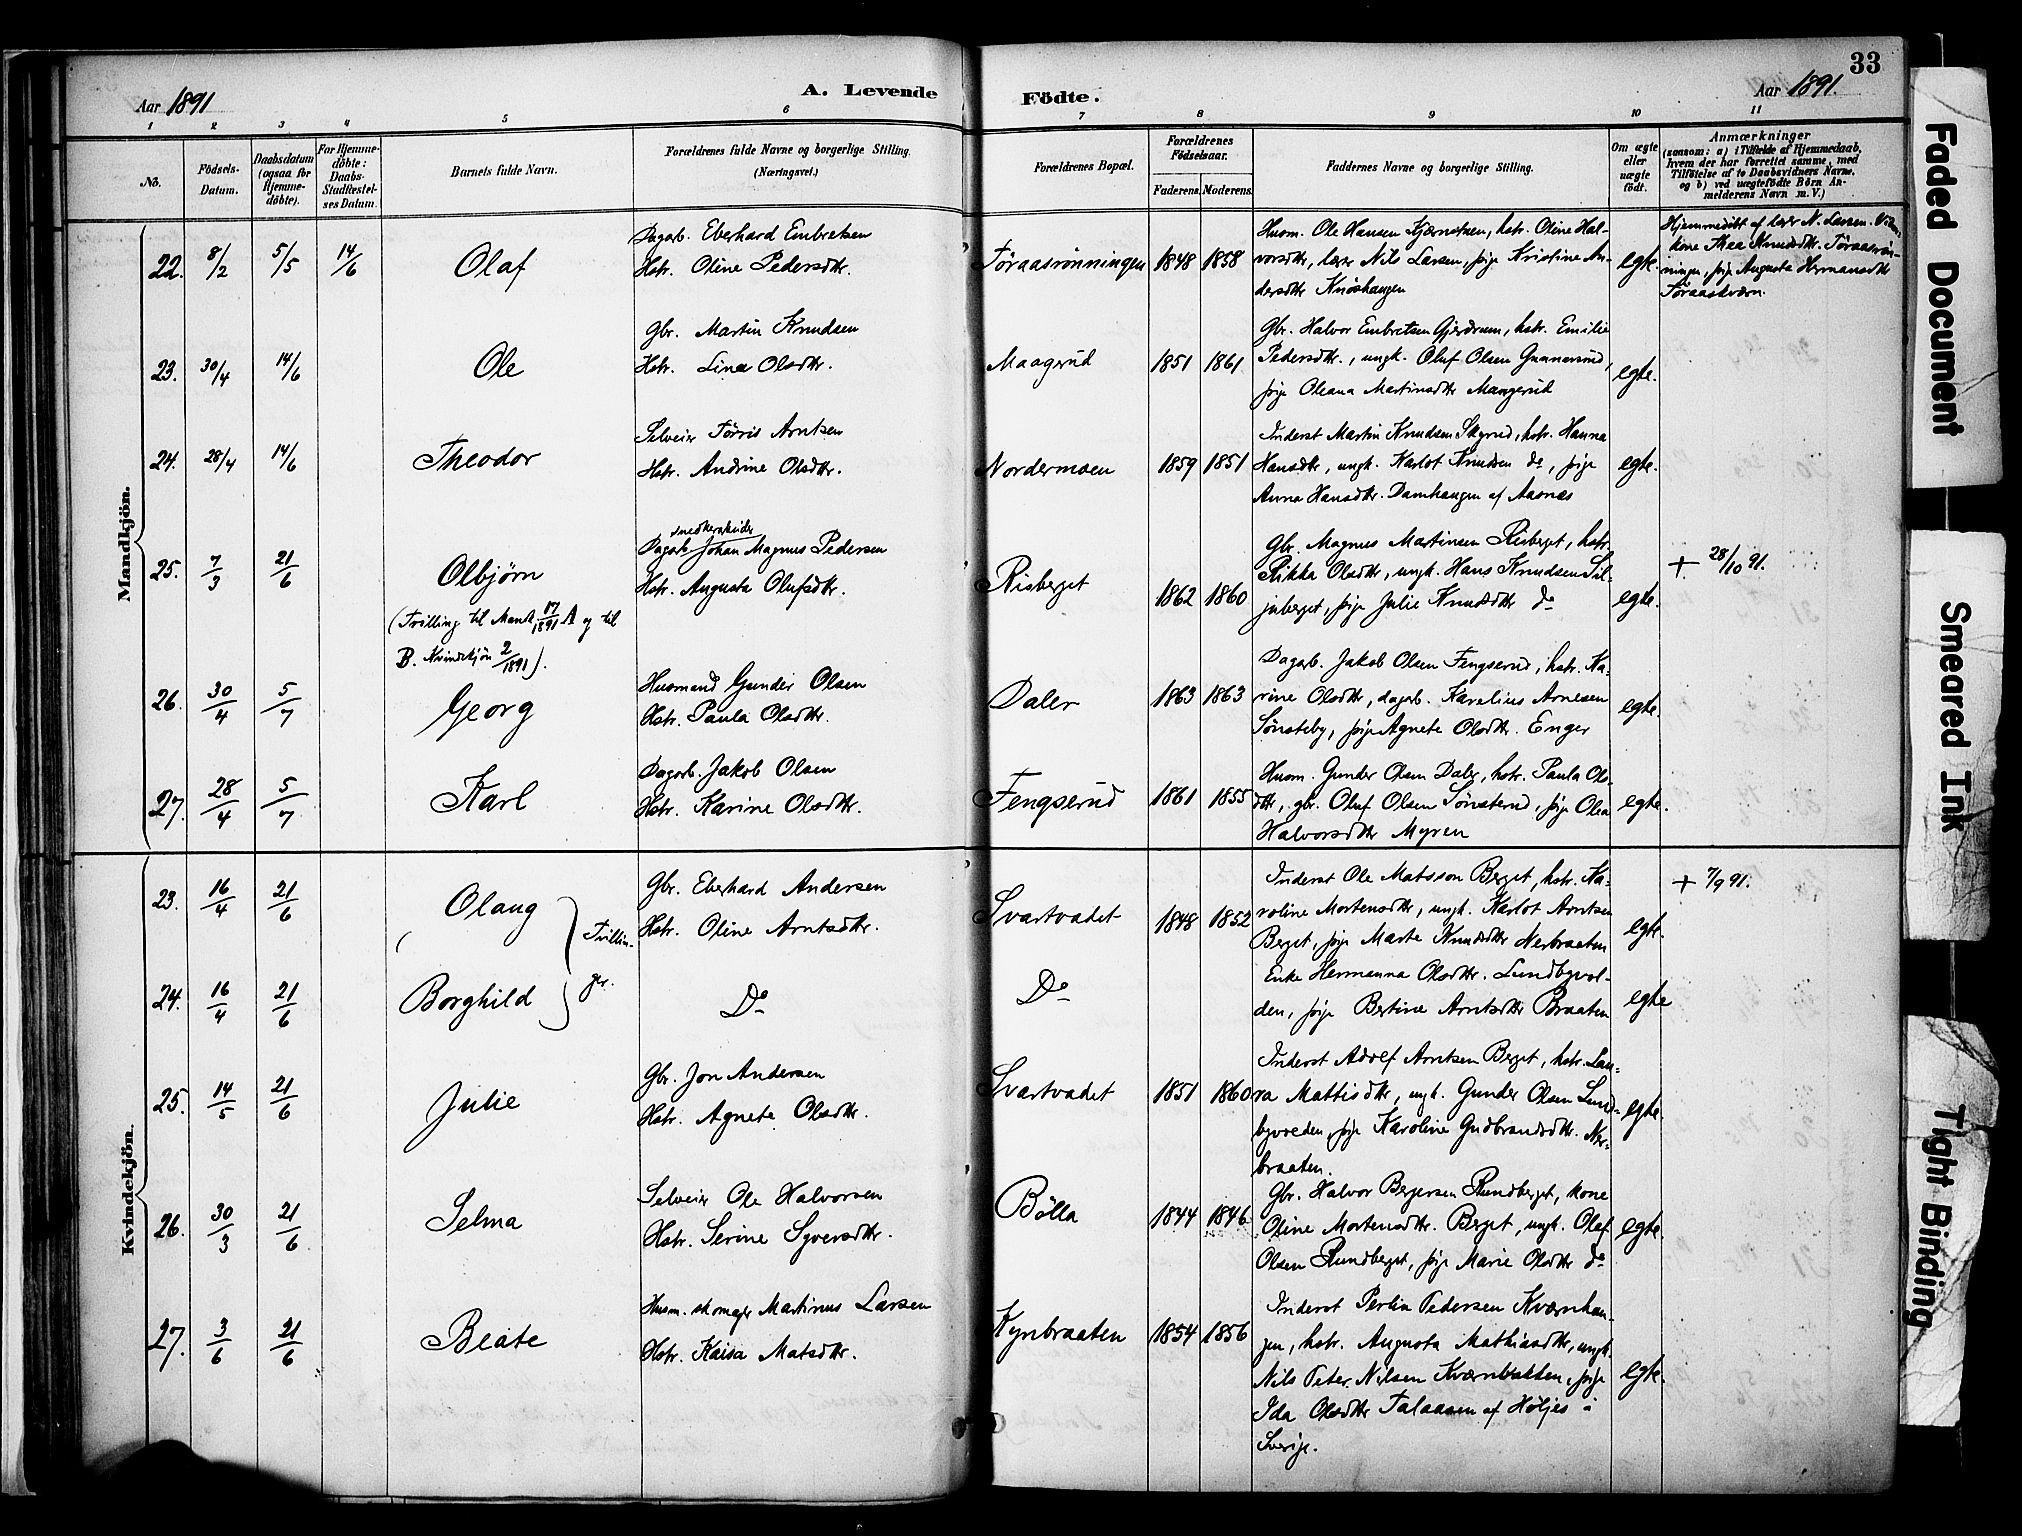 33
Aar 1891
A. Levende
Födte.
Aar 1891.
1 2 3 4 5 6 7 8 9 10 11
No.
Födsels-
Datum.
Daabsdatum
(ogsaa for
Hjemme-
döbte).
For Hjemme-
döbte:
Daabs-
Stadfæstel-
ses Datum.
Barnets fulde Navn.
Forældrenes fulde Navne og borgerlige Stilling.
(Næringsvei.)
Forældrenes Bopæl.
Forældrenes
Födselsaar.
Faderens. Moderens.
Faddernes Navne og borgerlige Stilling.
Om ægte
eller
uægte
födt.
Anmærkninger
(saasom: a) i Tilfælde af Hjemmedaab,
hvem der har forrettet samme, med
Tilföielse af to Daabsvidners Navne,
og b) ved uægtefödte Börn An-
melderens Navn m. V.)
Mandkjön.
22. 8/2 5/5 14/6 Olaf
Dagarb. Eberhard Embretsen
Hstr. Oline Pedersdtr.
Føraasrønningen 1848 1858
Husm. Ole Hansen Kjærnetsen, hstr. Oline Hal-
vorsdttr, lærer Nils Larsen, pige Kristine An-
dersdttr Knøshaugen
egte.
Hjemmedøbt af lærer N. Larsen. Vidner:
kone Thea Amundsdtr. Føraasrøn-
ningen, pige Augusta Hermansdttr
Føraaskværn.
23. 30/4 14/6 Ole
Gbr. Martin Knudsen
Hstr. Lina Olsdttr.
Maagerud 1851 1861
Gbr. Halvor Embretsen Gjerdrum, hstr. Emilie
Pedersdttr., ungk. Oluf Olsen Gunnersrud,
pige Oleana Martinsdttr Maagerud
egte.
24. 28/4 14/6 Theodor
Selveier Tørris Arntsen
Hstr. Andrine Olsdttr.
Nordermoen 1859 1851
Inderst Martin Knudsen Skgrud, hstr. Hanna
Hansdttr, ungk. Karlot Knudsen do, pige
Anna Hansdttr. Damhaugen af Aasnes
egte.
25. 7/3 21/6 Olbjørn
snedkerskind
Dagarb. Johan Magnus Pedersen
Hstr. Augusta Olufsdtr.
(Tvilling til Mandk. 17/1891 A og til
B. Kvindekjøn 2/1891).
Risberget 1862 1860
Gbr. Magnus Martinsen Risberget, hstr.
Rikka Olsdttr, ungk. Hans Knudsen Sil-
juberget, pige Julie Knudsdttr do
egte.
+ 28/10 91.
26. 30/4 5/7 Georg
Husmand Gunder Olsen
Hstr. Paula Olsdttr.
Daler 1863 1863
Dagarb. Jakob Olsen Fengserud, hstr. Ka-
rine Olsdttr, dagarb. Karelius Arnesen
Sønsteby, pige Agnete Olsdttr. Enger
egte.
27. 28/4 5/7 Karl
Dagarb. Jakob Olsen
Hstr. Karine Olsdttr.
Fengserud 1861 1855
Husm. Gunder Olsen Daler, hstr. Paula Ols-
dttr, gbr. Oluf Olsen Sønsterud, pige Olea
Halvorsdttr Myren
egte.
Kvindekjön.
23. 16/4 21/6 Olaug
Tvillin-
ger.
Gbr. Eberhard Andersen
Hstr. Oline Arntsdttr.
Svartvadet 1848 1852
Inderst Ole Matsson Berget, hstr. Ka-
roline Mortensdttr, ungk. Karlot Arntsen
Berget, pige Marte Knudsdttr Nerbraaten
egte.
+ 7/9 91.
24. 16/4 21/6 Borghild
Do
Do
Enke Hermanna Olsdttr. Lundbyvol-
den, pige Bertine Arntsdttr Braaten
egte
25. 14/5 21/6 Julie
Gbr. Jon Andersen
Hstr. Agnete Olsdttr.
Svartvadet 1851 1860
Inderst Adolf Arntsen Berget, hstr. Lau-
ra Mattisdttr, ungk. Gunder Olsen Lund-
byvolden, pige Karoline Gudbrandsdttr. Ner-
braaten.
egte.
26. 30/3 21/6 Selma
Selveier Ole Halvorsen
Hstr. Serine Syversdttr.
Bølla 1844 1846
Gbr. Halvor Bergersen Rundberget, kone
Oline Mortensdttr. Berget, ungk. Olaf
Olsen Rundberget, pige Marie Olsdttr do
egte.
27. 3/6 21/6 Beate
Husm. skomager Martinus Larsen
Hstr. Kaisa Matsdttr.
Kynbraaten 1854 1856
Inderst Perlin Pedersen Kværnhau-
gen, hstr. Augusta Mathiasdttr, ungk.
Nils Peter Nilsen Kværnbakken, pige
Ida Olsdttr Falaasen af Høljes i
Sverige.
egte.
Faded Document
Smeared Ink
Tight Binding